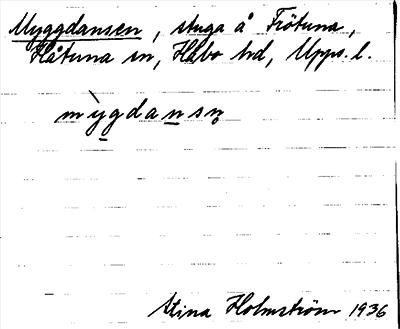 Myggdansen, stuga å Fiötuna,
Håtuna sn, Håbo hd, Upps. l.
mỳgdansn̥
Stina Holmström 1936